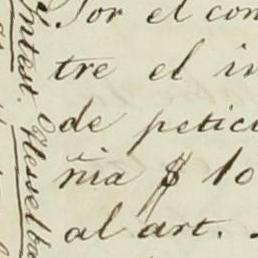 Por el con
tre el in
de petici
nia $ 10
al art.
Intest. Hesselba